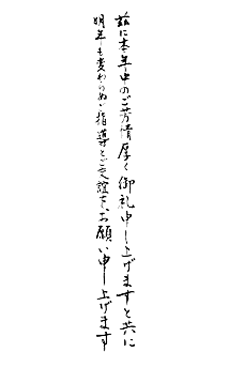 茲に本年中のご芳情厚く御礼申し上げますと共に
明年も変わらぬご指導とご交誼を、お願い申し上げます